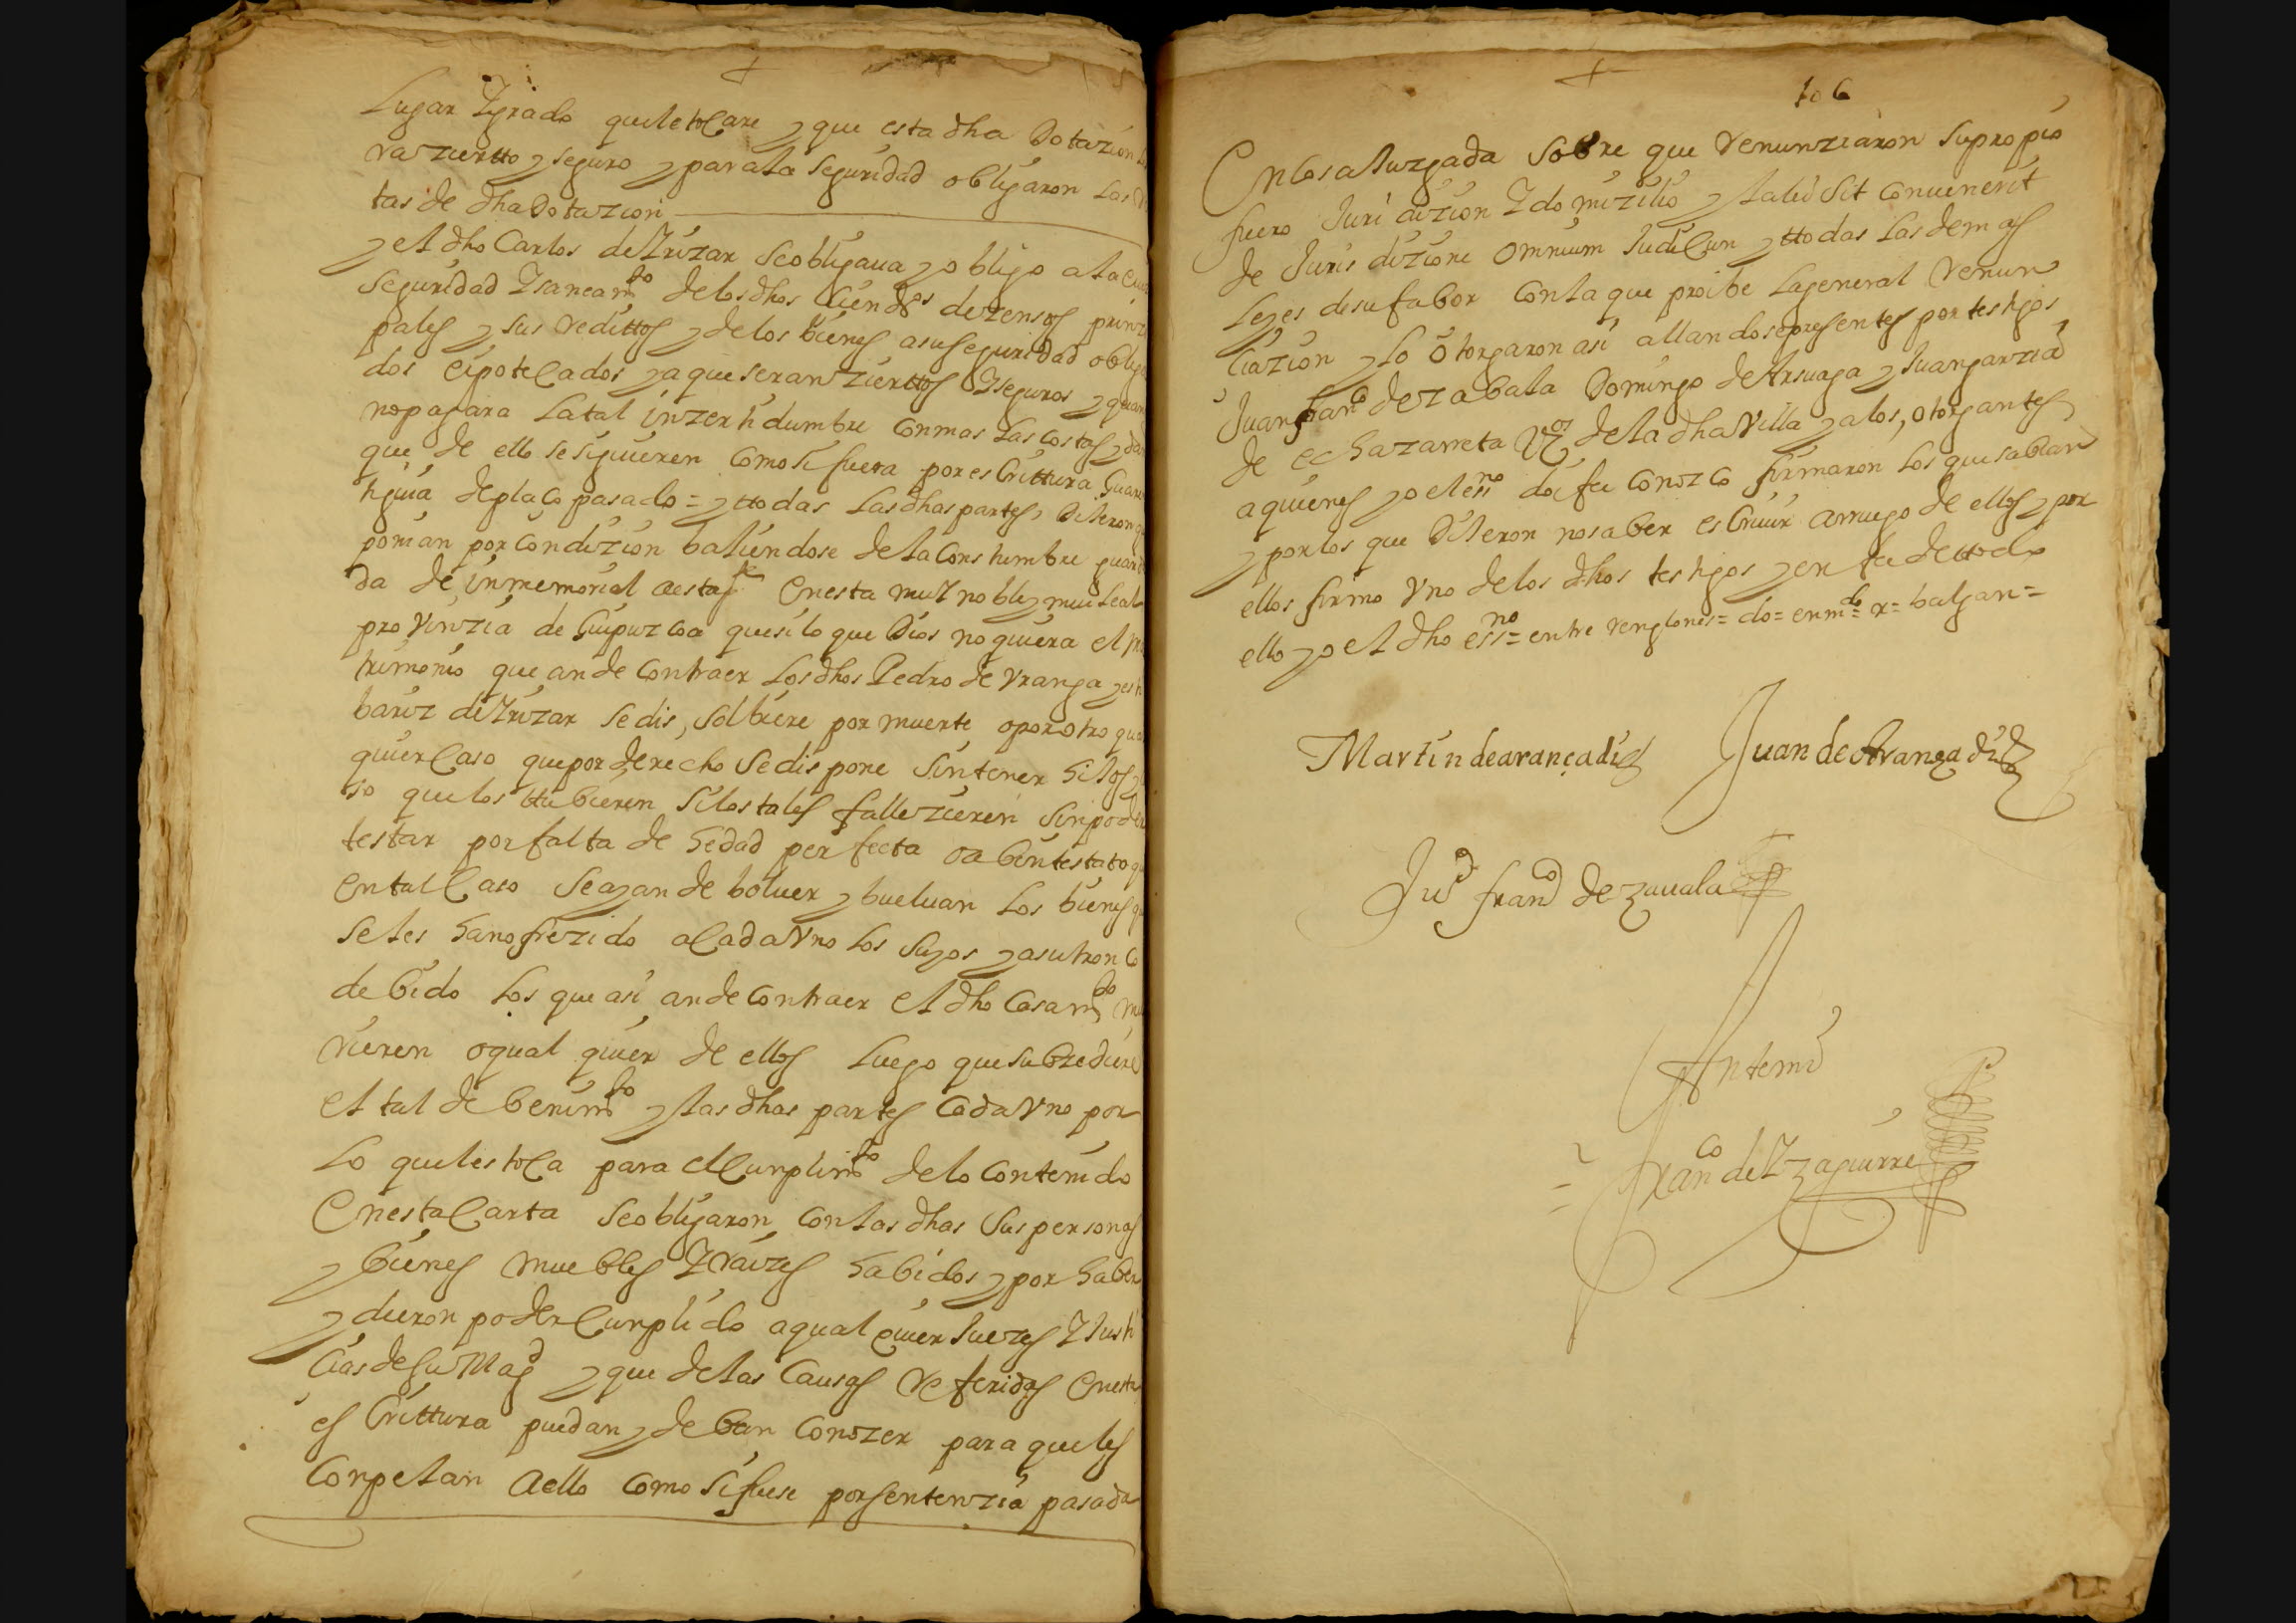 Lugar Y grado que le tocare y que esta dha Dotazion
ra zierto y seguro y para la seguridad obligaron las
tas de dha Dotazion
y el dho Carlos de Yrizar se obligaua y obligo a la
seguridad Y saneamto de los dhos zien dos de zensos prinzi
pales y sus redittos y de los bienes a su seguridad obliga
dos eipotecados y a que seran ziertos Y seguros y
no pagara la tal inzertidumbre con mas las costas y
que de ello se siguieren como si fuera por escrittura guaren
tijia de plaço pasado = y ttodas las dhas partes dijeron
ponian por condizion baliendose de la constumbre guarda
da de inmemorial a esta pte en esta muy noble y mui leal
provinzia de Guipuzcoa que si lo que Dios no quiera el
trimonio que an de contraer los dhos Pedro de Vranga y
bariz de Yrizar se dis,solbiere por muerte o por otro
quier caso que por derecho se dispone sin tener hijos
so que los ttubieren si los tales fallezieren sin poder
testar por falta de hedad perfecta o abintestato
en tal caso se ayan de boluer y bueluan los bienes
se les han ofrezido a cada vno los suyos y a su tronco
debido los que asi an de contraer el dho casamto
rieren o qual quier de ellos luego que subzediere
el tal debenimto y las dhas partes cada vno por
lo que les toca para el cunplimto de lo contenido
en esta carta se obligaron con las dhas sus personas
y bienes muebles Y raizes habidos y por haber
y dieron poder cunplido a qual quier juezes Y justi
cias de su Magd y que de las causas referidas en esta
escrittura puedan y deban conozer para que les
conpelan a ello como si fuese por sentenzia pasada
106
en cosa juzgada sobre que renunziaron su propio
fuero juridizion Y domizilio y la lei sit convenerit
de jurisdizione omnium judicun y ttodas las demas
leyes de su fabor con la que proibe la general renun
ciazion y lo otorgaron asi allandose presentes por testigos
Juan franco de zabala Domingo de Arsuaga y Juan garzia
de echazarreta vzos de la dha villa y a los, otorgantes
a quienes yo el essno doi fee conozco firmaron los que sabian
y por los que dijeron no saber escriuir a rruego de ellos y por
ellos firmo vno de los dhos testigos y en fee de ttodo
ello yo el dho essno = entre renglones = do = enmdo = r = balgan =
Martin de arançadi
Juan de Arançadi
Juo franco de zauala
Ante mi
Franco de Yzaguirre